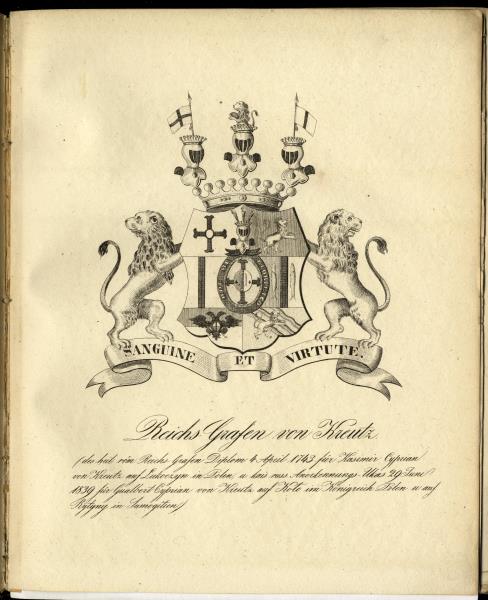 SANGUINE ET VIRTUTE.
Reichs Grafen von Kreutz
(das heil. röm. Reichs Grafen Diplom 4. April 1743 für Kasimir Cyprian
von Kreutz auf in Polen, u. das russ. Anerkennungs-Ukas 29 Juni
1839 für Gualbert Cyprian von Kreutz auf Kotz im Königreich Polen u. auf
in Samogitien)